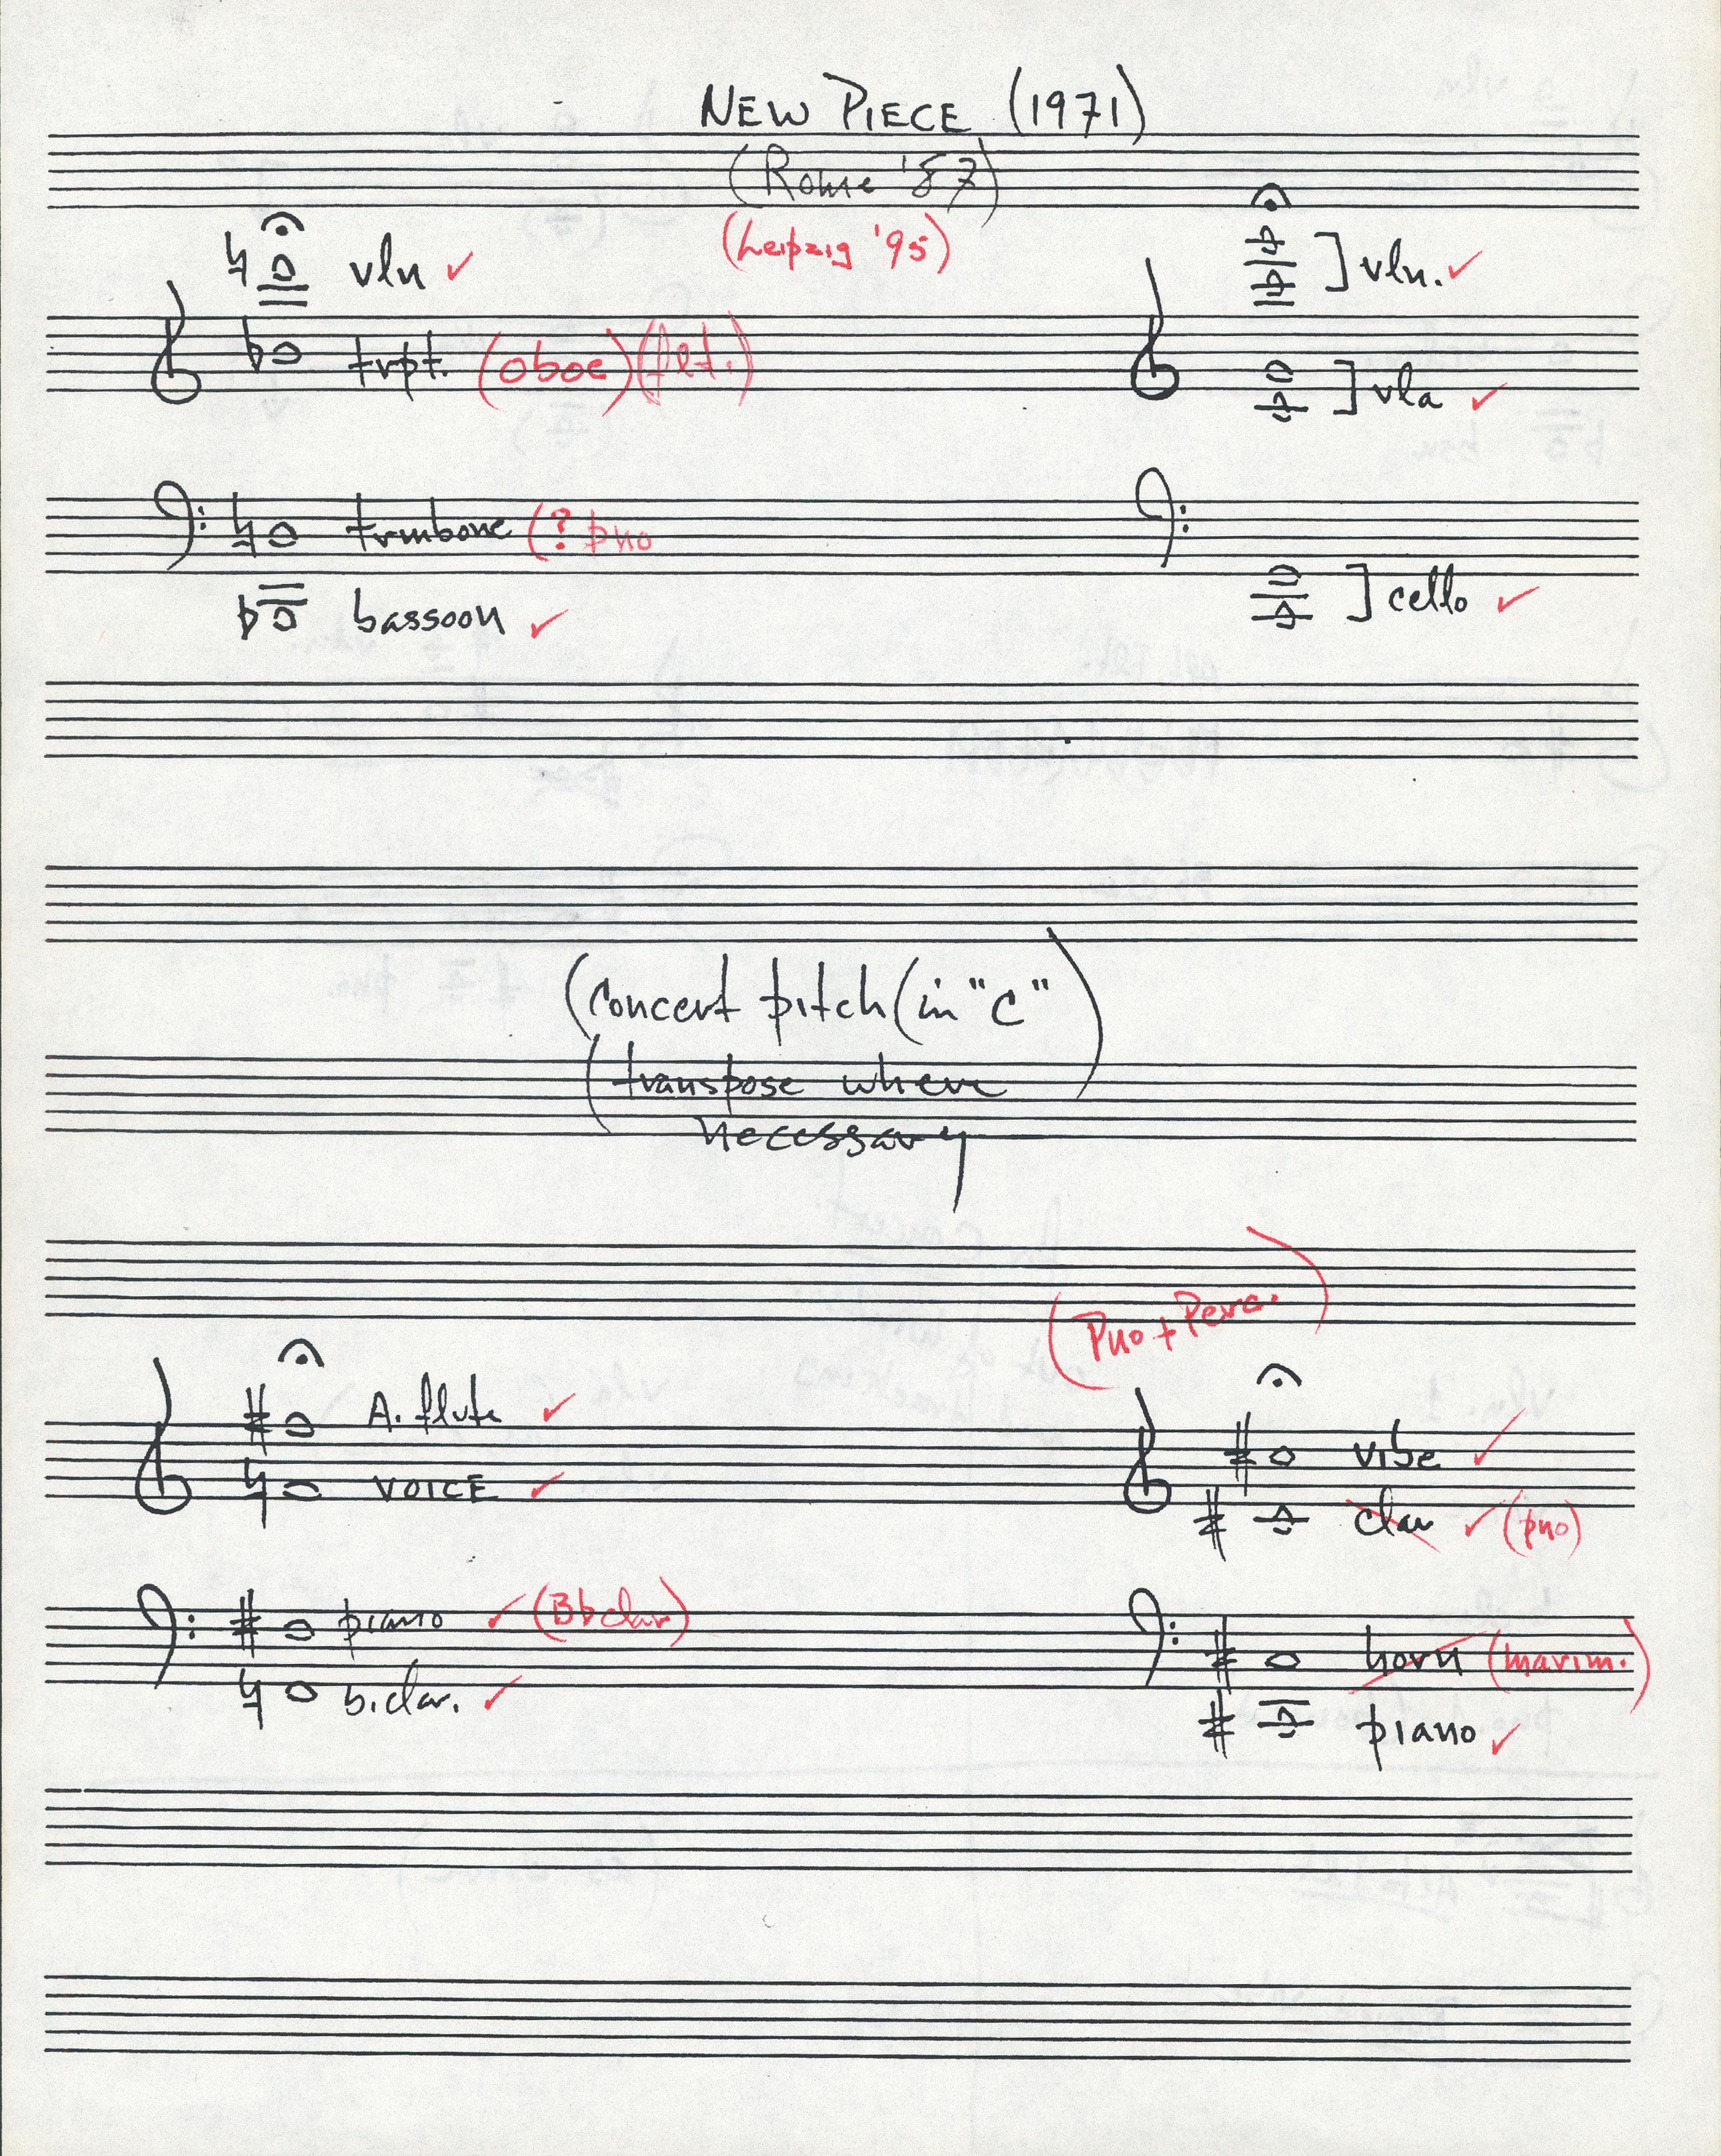 NEW PIECE (1971)
(Rome '87)
(Leipzig '95)
vln ✓
] vln. ✓
trpt. (oboe) (flt.)
] vla ✓
trmbone (? pno
bassoon ✓
] cello ✓
(Concert pitch (in "C"
(transpose where
necessary)
(Pno + Perc.)
A. flute ✓
VOICE ✓
vibe ✓
clar ✓ (pno)
piano ✓ (Bb clar)
b. clar. ✓
horn (marim.)
piano ✓